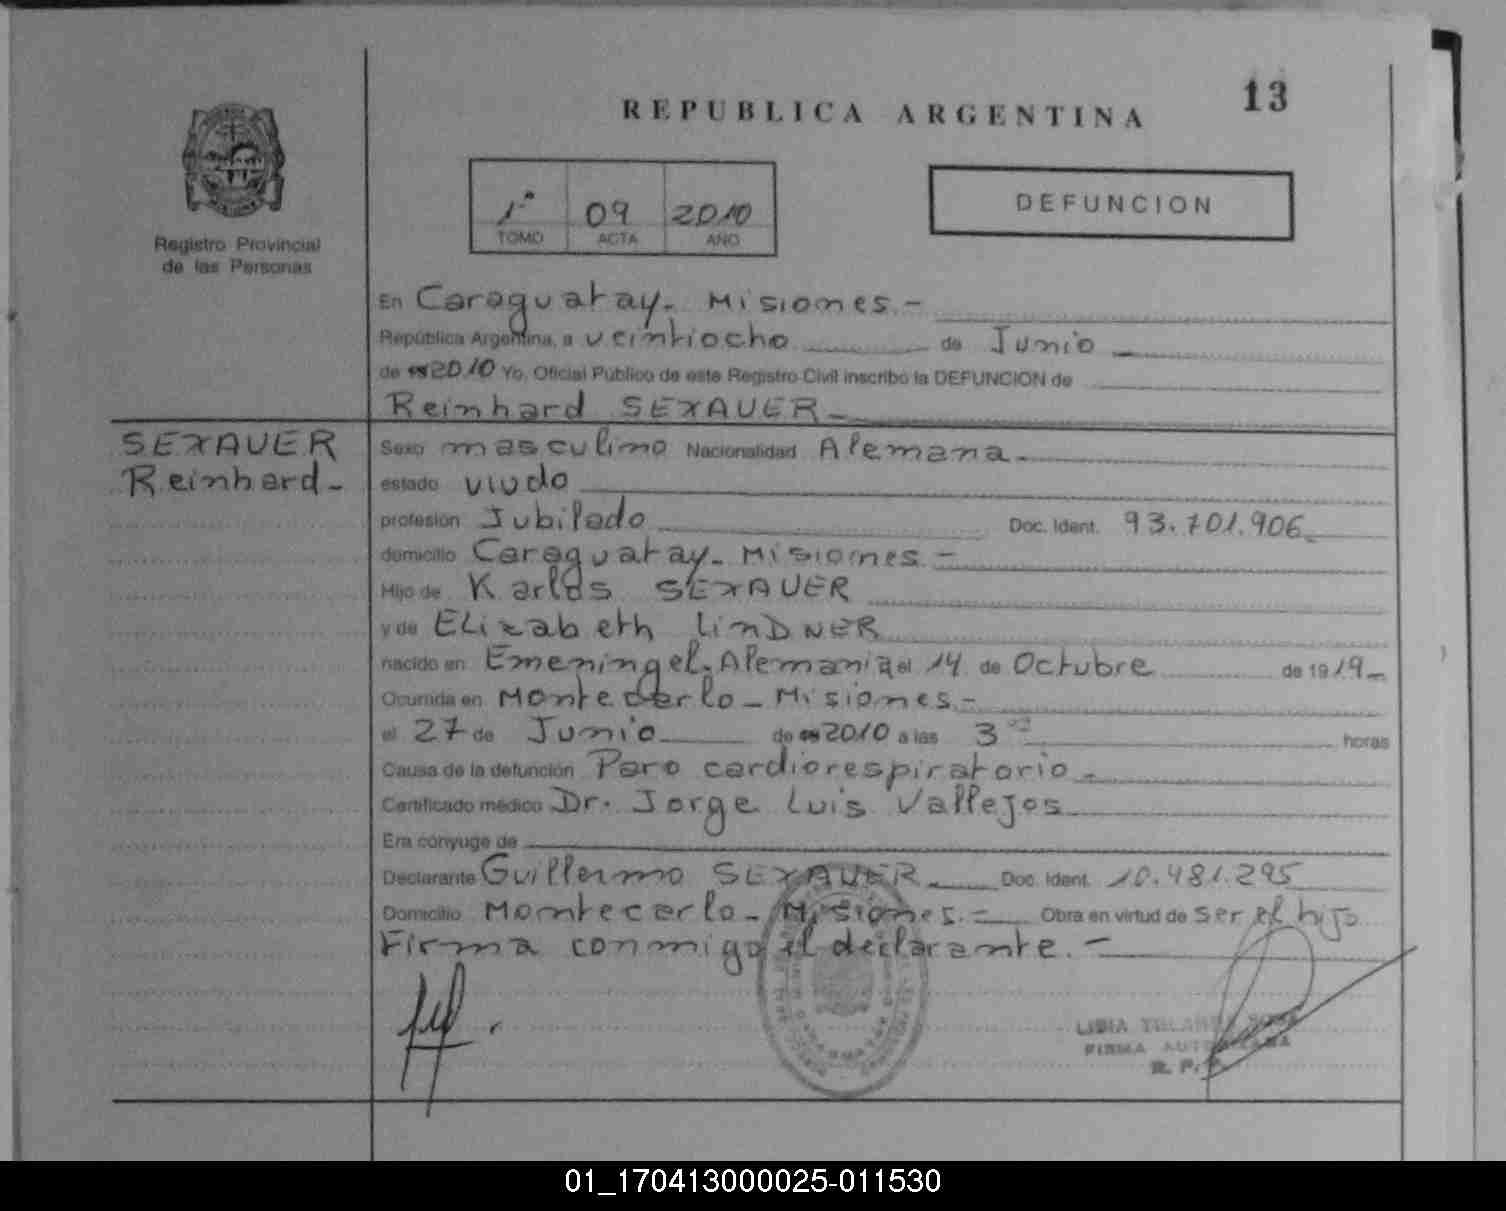 13
REPUBLICA ARGENTINA
Registro Provincial
de las Personas
1º 09 2010
TOMO ACTA AÑO
DEFUNCION
En Caraguatay - Misiones.-
República Argentina, a veintiocho de Junio -
de 2010 Yo, Oficial Público de este Registro Civil inscribo la DEFUNCION de
Reinhard SEXAUER -
SEXAUER
Reinhard -
Sexo masculino Nacionalidad Alemana -
estado viudo
profesión Jubilado Doc. Ident. 93.701.906
domicilio Caraguatay - Misiones.-
Hijo de Karlos SEXAUER
y de ELizabeth LinDNER
nacido en Emeningel. Alemania el 14 de Octubre de 1919 -
Ocurrida en Montecarlo - Misiones.-
el 27 de Junio de 2010 a las 3 horas
Causa de la defunción Paro cardiorespiratorio -
Certificado médico Dr. Jorge Luis Vallejos
Era cónyuge de
Declarante Guillermo SEXAUER - Doc. Ident. 10.481.295
Domicilio Montecarlo - Misiones.- Obra en virtud de ser el hijo
Firma conmigo el declarante.-
LIDIA
FIRMA AUTORIZADA
R. P.
01_170413000025-011530